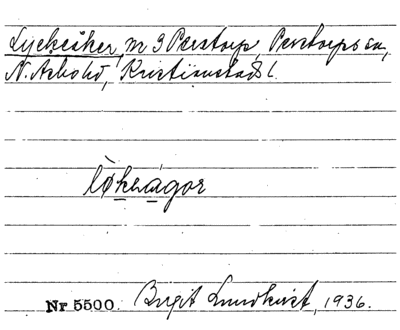 Lyckeåker, m 9 Perstorp, Perstorps sn,
N. Åsbo hd, Kristianstads l.
lø̀keågor
Nr 5500. Birgit Lundkvist, 1936.